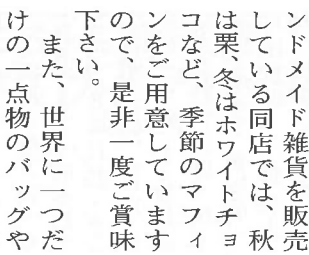 ンドメイド雑貨を販売
している同店では、秋
は栗、冬はホワイトチョ
コなど、季節のマフィ
ンをご用意しています
ので、是非一度ご賞味
下さい。
また、世界に一つだ
けの一点物のバッグや